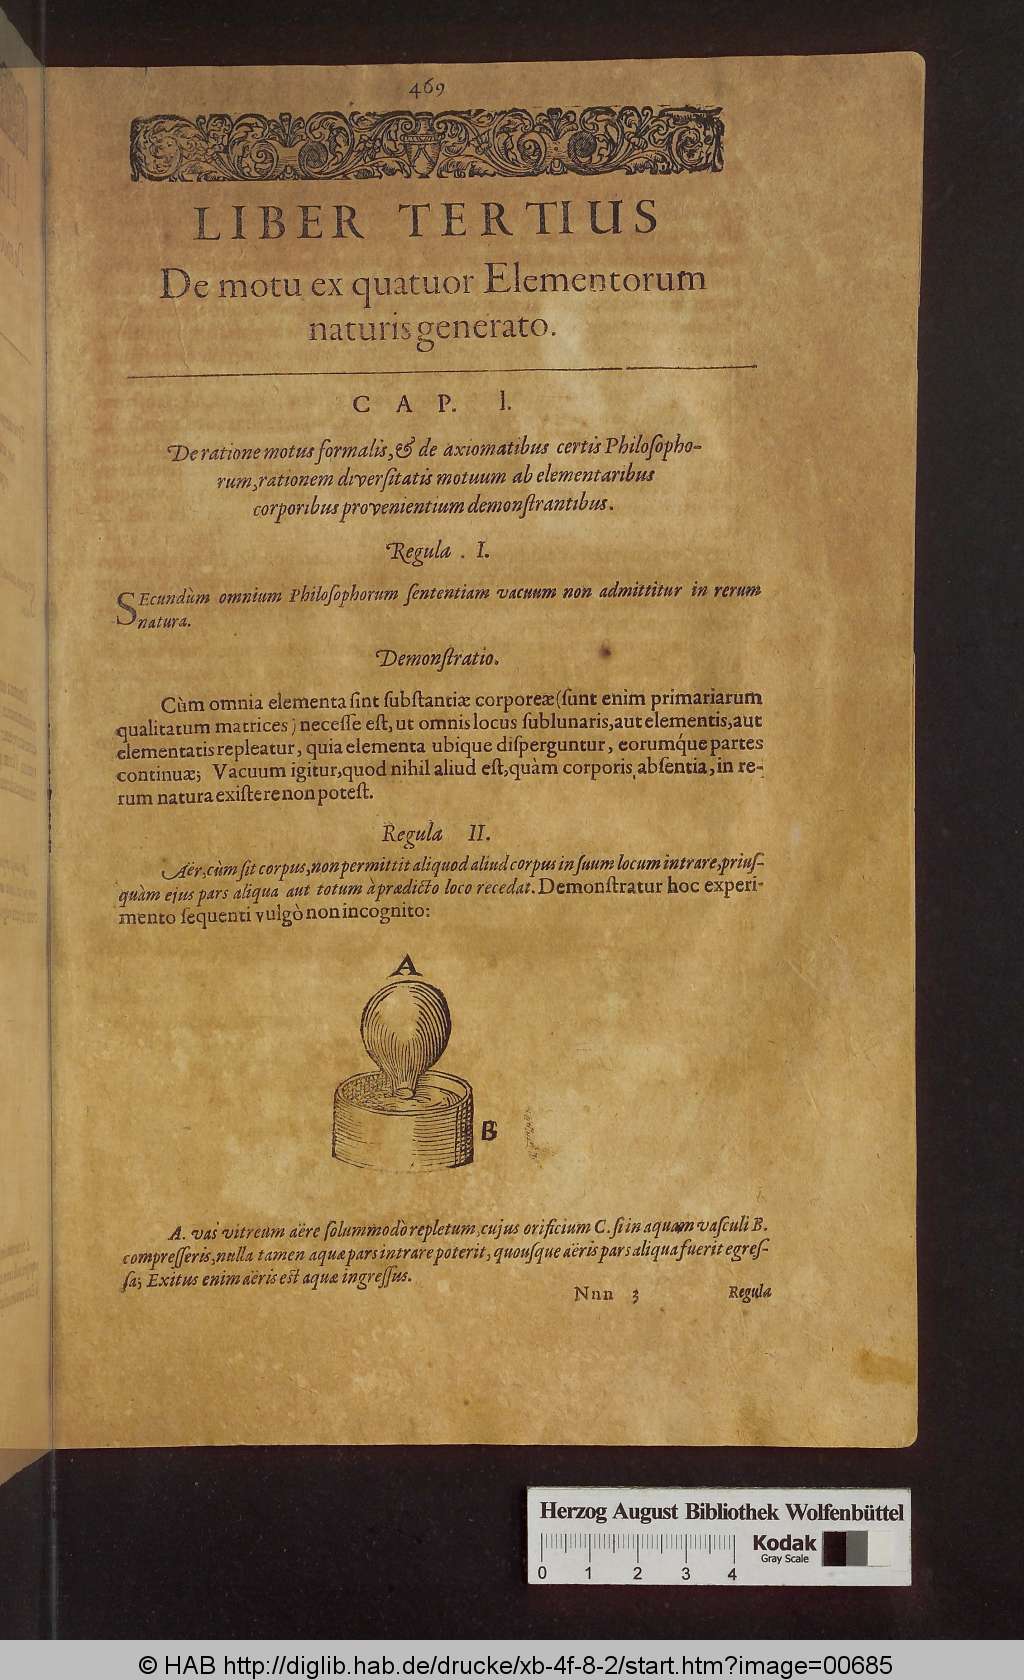 469
LIBER TERTIUS
De motu ex quatuor Elementorum
naturis generato.
CAP. I.
De ratione motus formalis, & de axiomatibus certis Philosopho-
rum, rationem diversitatis motuum ab elementaribus
corporibus provenientium demonstrantibus.
Regula . I.
SEcundùm omnium Philosophorum sententiam vacuum non admittitur in rerum
natura.
Demonstratio.
Cùm omnia elementa sint substantiæ corporeæ (sunt enim primariarum
qualitatum matrices) necesse est, ut omnis locus sublunaris, aut elementis, aut
elementatis repleatur, quia elementa ubique disperguntur, eorumq́ue partes
continuæ; Vacuum igitur, quod nihil aliud est, quàm corporis absentia, in re-
rum natura existere non potest.
Regula II.
Aër, cùm sit corpus, non permittit aliquod aliud corpus in suum locum intrare, prius-
quàm ejus pars aliqua aut totum à prædicto loco recedat. Demonstratur hoc experi-
mento sequenti vulgò non incognito:
A
B
A. vas vitreum aëre solummodò repletum, cujus orificium C. si in aquam vasculi B.
compresseris, nulla tamen aquæ pars intrare poterit, quousque aëris pars aliqua fuerit egres-
sa; Exitus enim aëris est aquæ ingressus.
Nnn 3 Regula
Herzog August Bibliothek Wolfenbüttel
Kodak
Gray Scale
0 1 2 3 4
© HAB http://diglib.hab.de/drucke/xb-4f-8-2/start.htm?image=00685